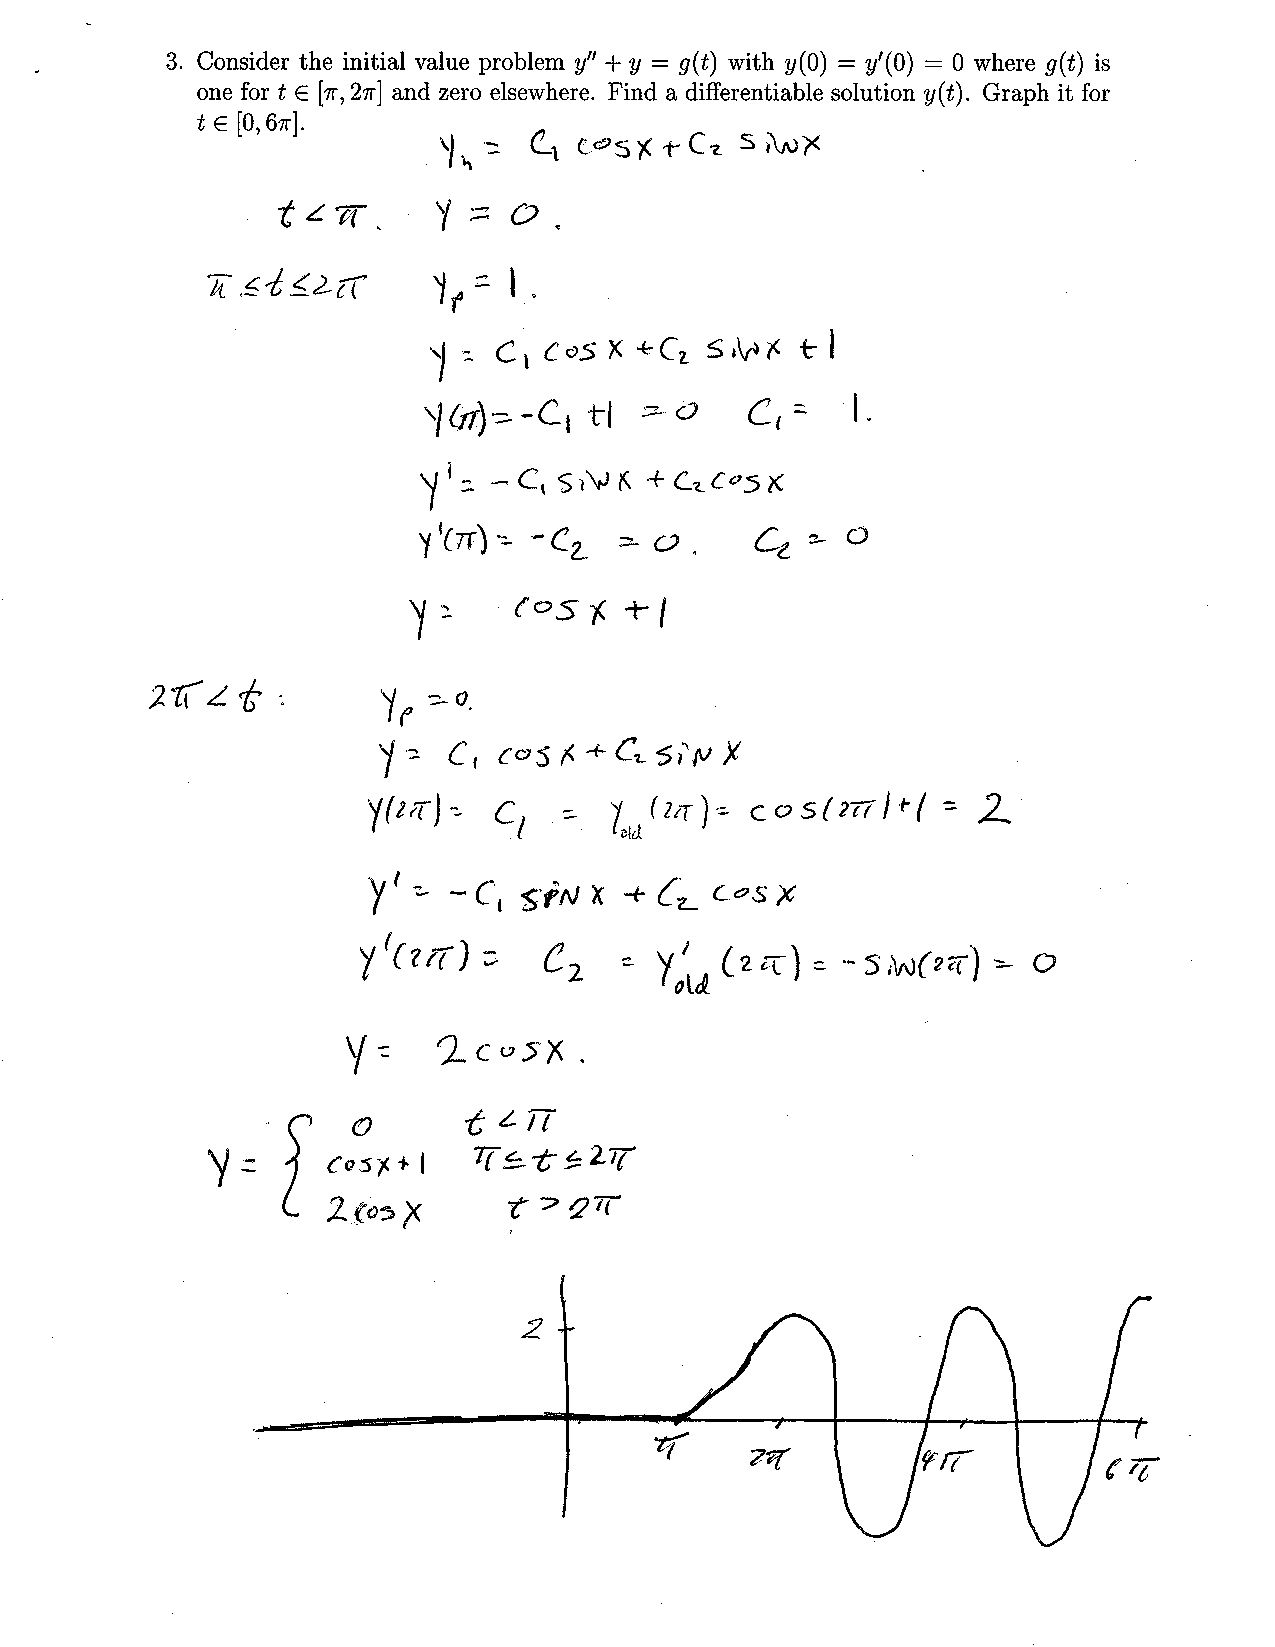 3. Consider the initial value problem y″ + y = g(t) with y(0) = y′(0) = 0 where g(t) is
one for t ∈ [π, 2π] and zero elsewhere. Find a differentiable solution y(t). Graph it for
t ∈ [0, 6π].
y_h = C₁ cosx + C₂ sinx
t < π. y = 0.
π ≤ t ≤ 2π y_p = 1.
y = C₁ cosx + C₂ sinx + 1
y(π) = -C₁ + 1 = 0 C₁ = 1.
y' = -C₁ sinx + C₂ cosx
y'(π) = -C₂ = 0. C₂ = 0
y = cosx + 1
2π < t : y_p = 0.
y = C₁ cosx + C₂ sinx
y(2π) = C₁ = y_old(2π) = cos(2π) + 1 = 2
y' = -C₁ sinx + C₂ cosx
y'(2π) = C₂ = y'_old(2π) = -sin(2π) = 0
y = 2cosx.
y = { 0 t < π
cosx + 1 π ≤ t ≤ 2π
2cosx t > 2π
2
π 2π 4π 6π